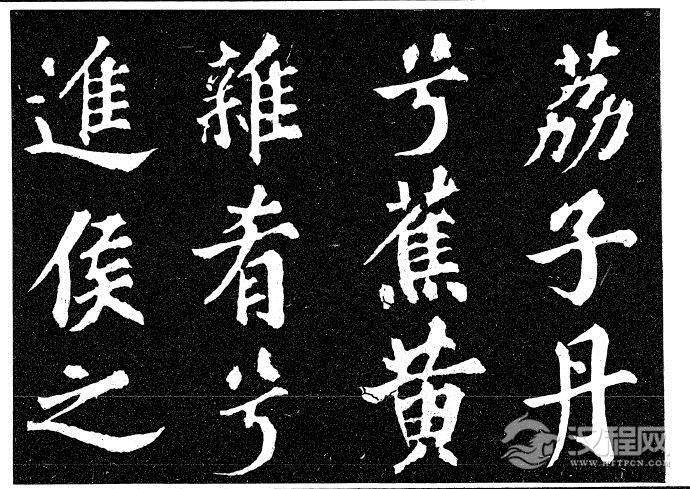 荔子丹
兮蕉黄
雜肴兮
進侯之
汉程网
WWW.HTTPCN.COM